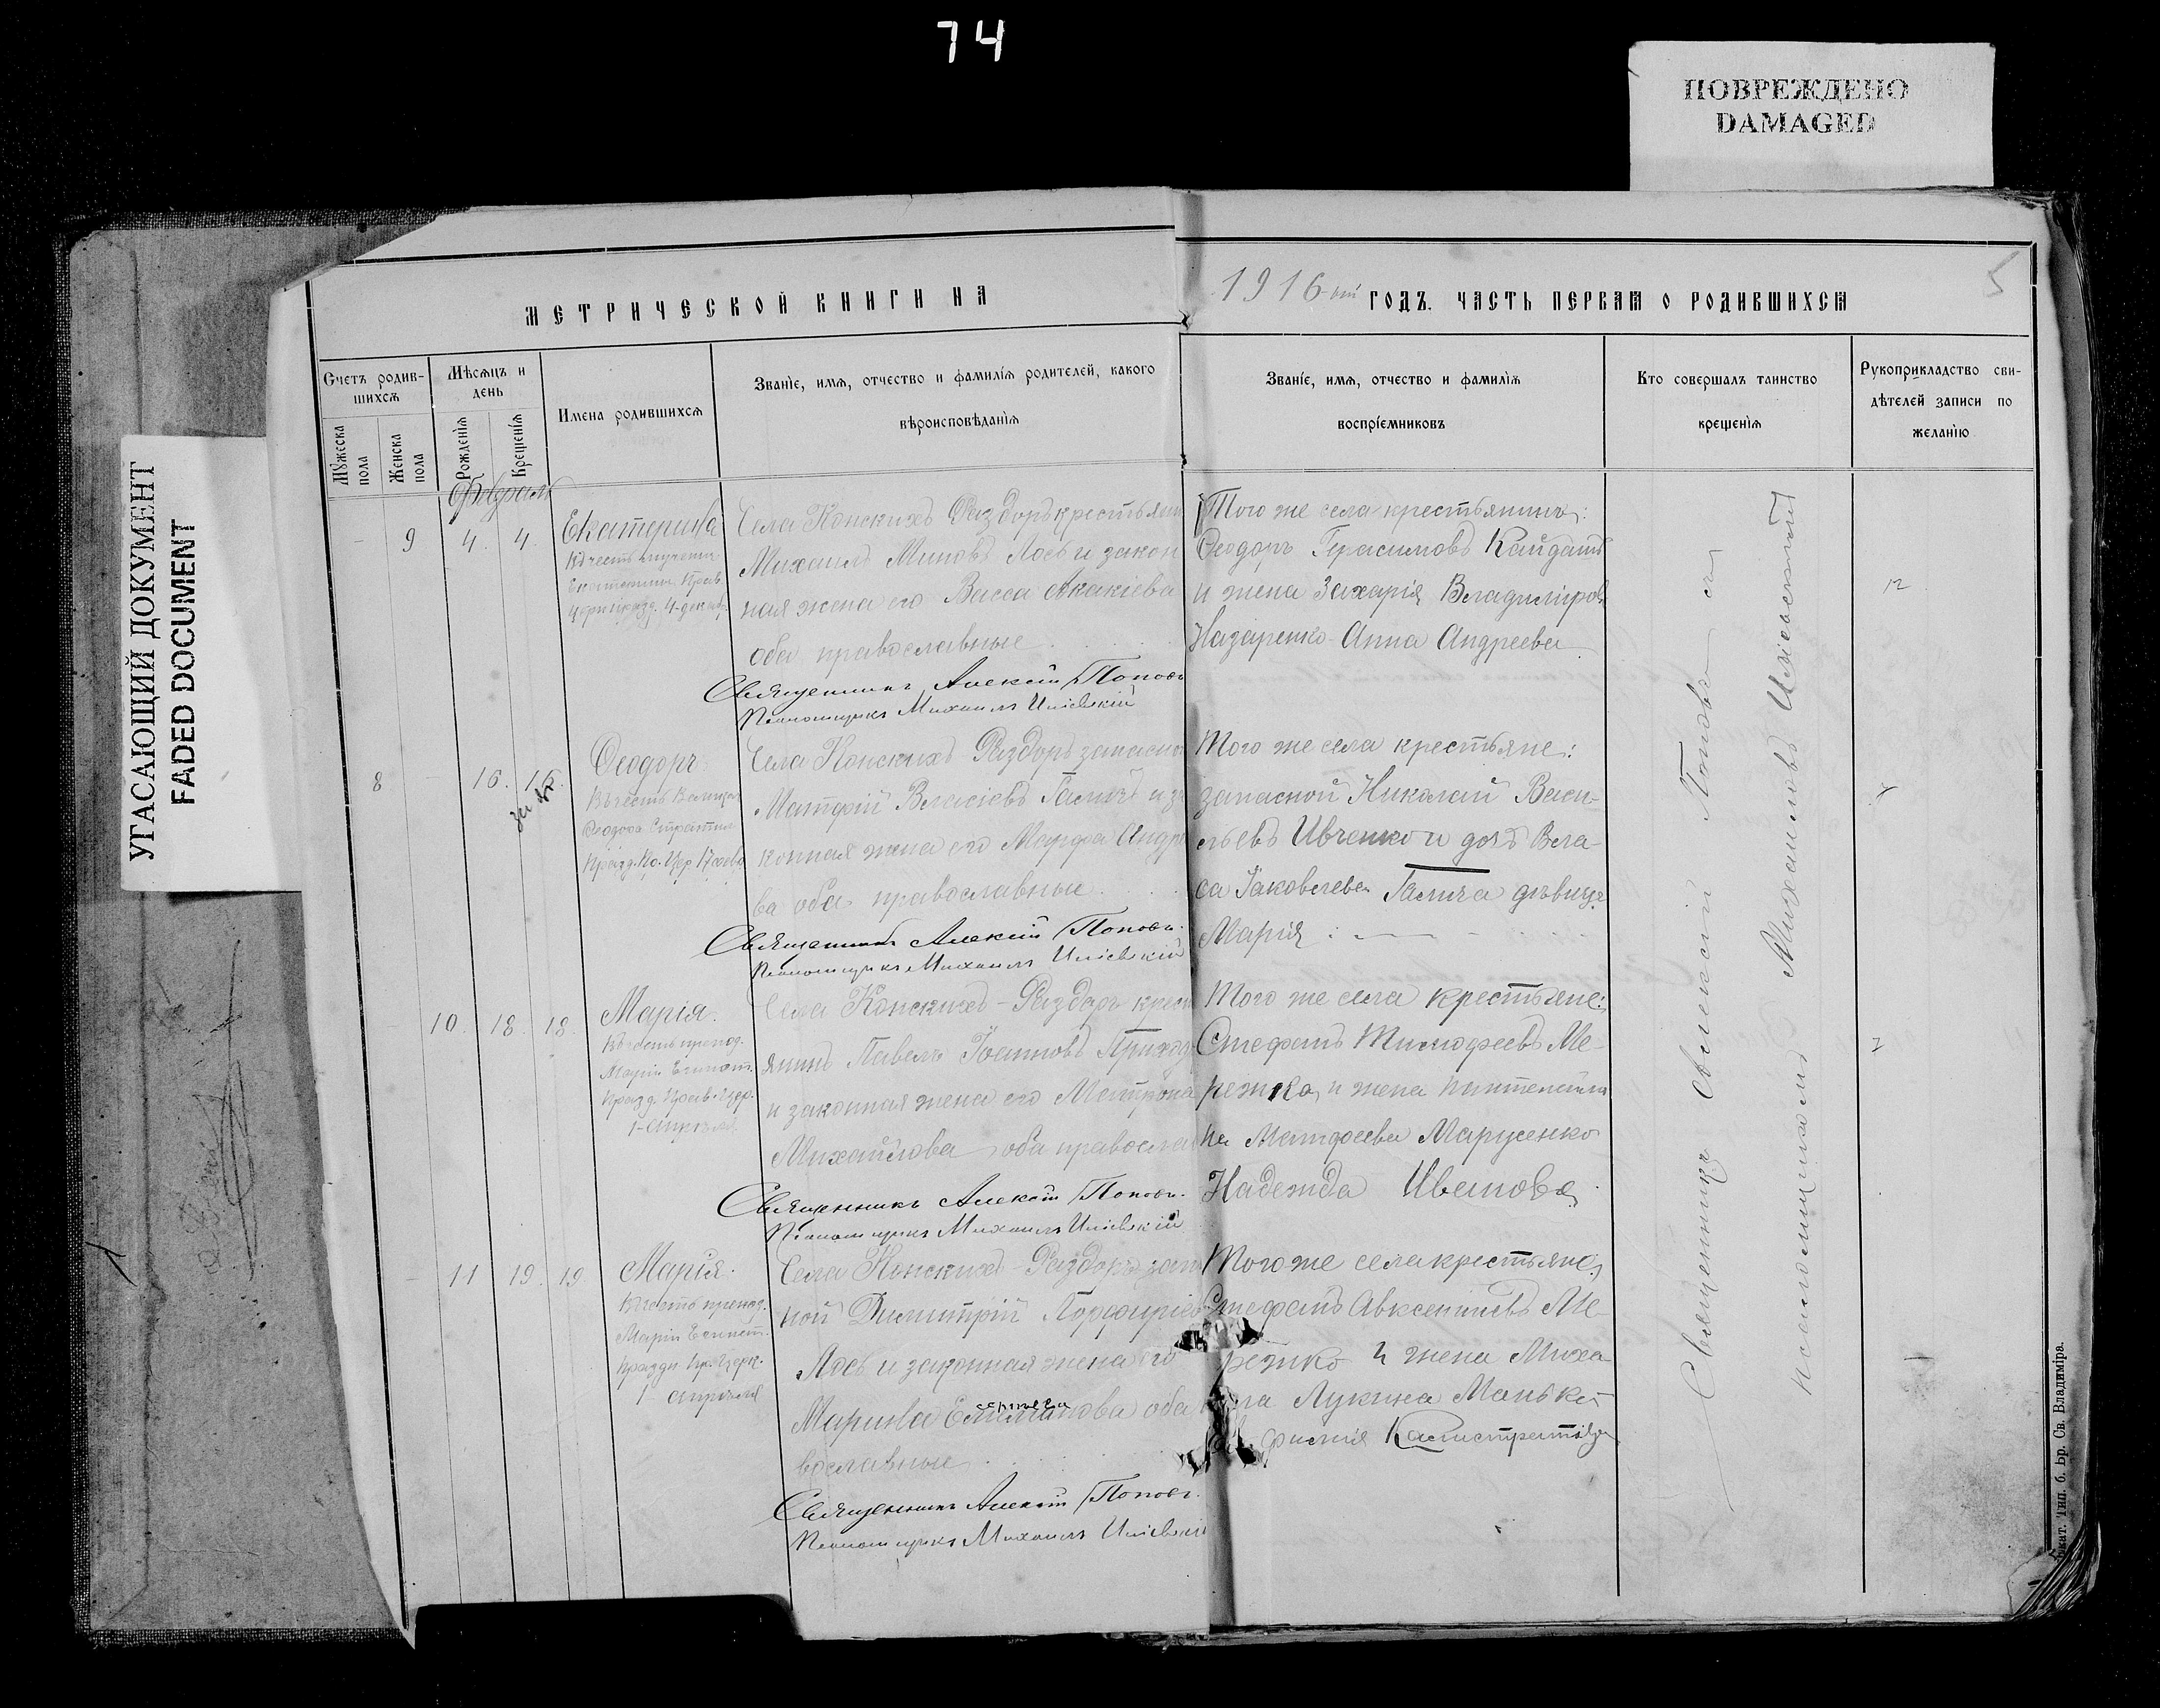 74
ПОВРЕЖДЕНО
DAMAGED
УГАСАЮЩИЙ ДОКУМЕНТ
FADED DOCUMENT
МЕТРИЧЕСКОЙ КНИГИ НА
1916-ый ГОДЪ. ЧАСТЬ ПЕРВАЯ О РОДИВШИХСЯ
5
Счетъ родив-
шихся
Мужеска
пола
Женска
пола
Мѣсяцъ и
день
Рожденїя
Крещенїя
Имена родившихся
Званїе, имя, отчество и фамилїя родителей, какого
вѣроисповѣданїя
Званїе, имя, отчество и фамилїя
воспрїемниковъ
Кто совершалъ таинство
крещенїя
Рукоприкладство сви-
дѣтелей записи по
желанїю
Февраль
9 4. 4.
Екатерина
Екатерины Прав.
Села Конскихъ Раздоръ крестьянин
Михаилъ Миновъ Лось и закон
ная жена его Васса Акакіева
оба православные
Священникъ Алексій Поповъ
Псаломщикъ Михаилъ
Того же села крестьянинъ:
Ѳеодоръ Герасимовъ Кайдашъ
и жена Захарія Владиміров
Назаренко Анна Андреева
8 16.
Ѳеодоръ
Ѳеодора Стратил
Празд. Пр. Цер. 17 февр
Села Конскихъ Раздоръ запасной
Матфій Власіевъ Галичъ и за
конная жена его Марфа Андре
ва оба православные
Священникъ Алексій Поповъ.
Псаломщикъ Михаилъ
Того же села крестьяне:
запасной Николай Васи-
льевъ Ивченко и дочь Вла-
са Іаковлева Галича дѣвица
Марія
10. 18. 18.
Марія.
Въ честь препод.
Маріи Египет.
Празд. Прав. Цер.
1-апрѣля
Села Конскихъ-Раздоръ крест
янинъ Павелъ Іоанновъ
и законная жена его Матрона
Михайлова оба православ
Священникъ Алексій Поповъ.
Псаломщикъ Михаилъ
Того же села крестьяне:
Стефанъ Тимофеевъ Ме-
режко, и жена
Матфеева Марусенко
Надежда Иванова
11 19. 19
Марія.
Въ честь препод.
Маріи Египет.
Праздн. Пр. Церк.
1 апрѣля
Села Конскихъ-Раздоръ запас
ной Димитрій Порфиріев
Лось и законная жена его
Марина оба
вославные
Священникъ Алексій Поповъ.
Псаломщикъ Михаилъ
Того же села крестьяне
Стефанъ Авксентіевъ Ме-
режко и жена Миха
ила Лукина Манько
Калистратова
Священникъ Алексій Поповъ съ
псаломщикомъ Михаиломъ
Екат. Тип. б. Бр. Св. Владиміра.